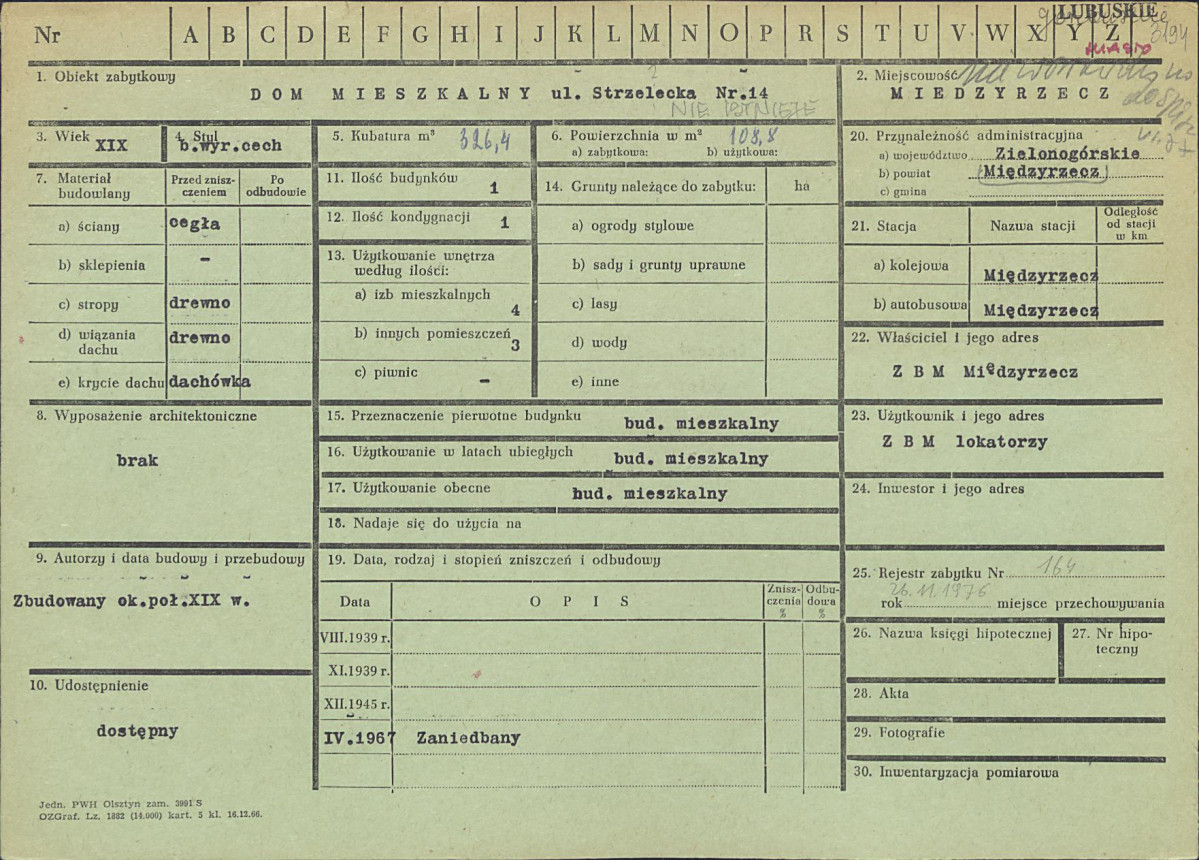 Nr A B C D E F G H I J K L M N O P R S T U V W X Y Z
LUBUSKIE
3194
MIASTO
1. Obiekt zabytkowy
DOM MIESZKALNY ul. Strzelecka Nr.14
NIE ISTNIEJE
2. Miejscowość
MIEDZYRZECZ
3. Wiek XIX
4. Styl
b.wyr.cech
5. Kubatura m³ 326,4
6. Powierzchnia w m² 108,8
a) zabytkowa: b) użytkowa:
7. Materiał budowlany
Przed zniszczeniem
Po odbudowie
a) ściany cegła
b) sklepienia -
c) stropy drewno
d) wiązania dachu drewno
e) krycie dachu dachówka
8. Wyposażenie architektoniczne
brak
9. Autorzy i data budowy i przebudowy
Zbudowany ok.poł.XIX w.
10. Udostępnienie
dostępny
11. Ilość budynków 1
12. Ilość kondygnacji 1
13. Użytkowanie wnętrza
według ilości:
a) izb mieszkalnych 4
b) innych pomieszczeń 3
c) piwnic -
14. Grunty należące do zabytku: ha
a) ogrody stylowe
b) sady i grunty uprawne
c) lasy
d) wody
e) inne
15. Przeznaczenie pierwotne budynku bud. mieszkalny
16. Użytkowanie w latach ubiegłych bud. mieszkalny
17. Użytkowanie obecne bud. mieszkalny
18. Nadaje się do użycia na
19. Data, rodzaj i stopień zniszczeń i odbudowy
Data OPIS Zniszczenia % Odbudowa %
VIII.1939 r.
XI.1939 r.
XII.1945 r.
IV.1967 Zaniedbany
20. Przynależność administracyjna
a) województwo Zielonogórskie
b) powiat Międzyrzecz
c) gmina
21. Stacja Nazwa stacji Odległość od stacji w km
a) kolejowa Międzyrzecz
b) autobusowa Międzyrzecz
22. Właściciel i jego adres
Z B M Międzyrzecz
23. Użytkownik i jego adres
Z B M lokatorzy
24. Inwestor i jego adres
25. Rejestr zabytku Nr 164
26.11.1976
rok miejsce przechowywania
26. Nazwa księgi hipotecznej
27. Nr hipoteczny
28. Akta
29. Fotografie
30. Inwentaryzacja pomiarowa
Jedn. PWH Olsztyn zam. 3991 S
OZGraf. Lz. 1882 (14.000) kart. 3 kl. 16.12.66.